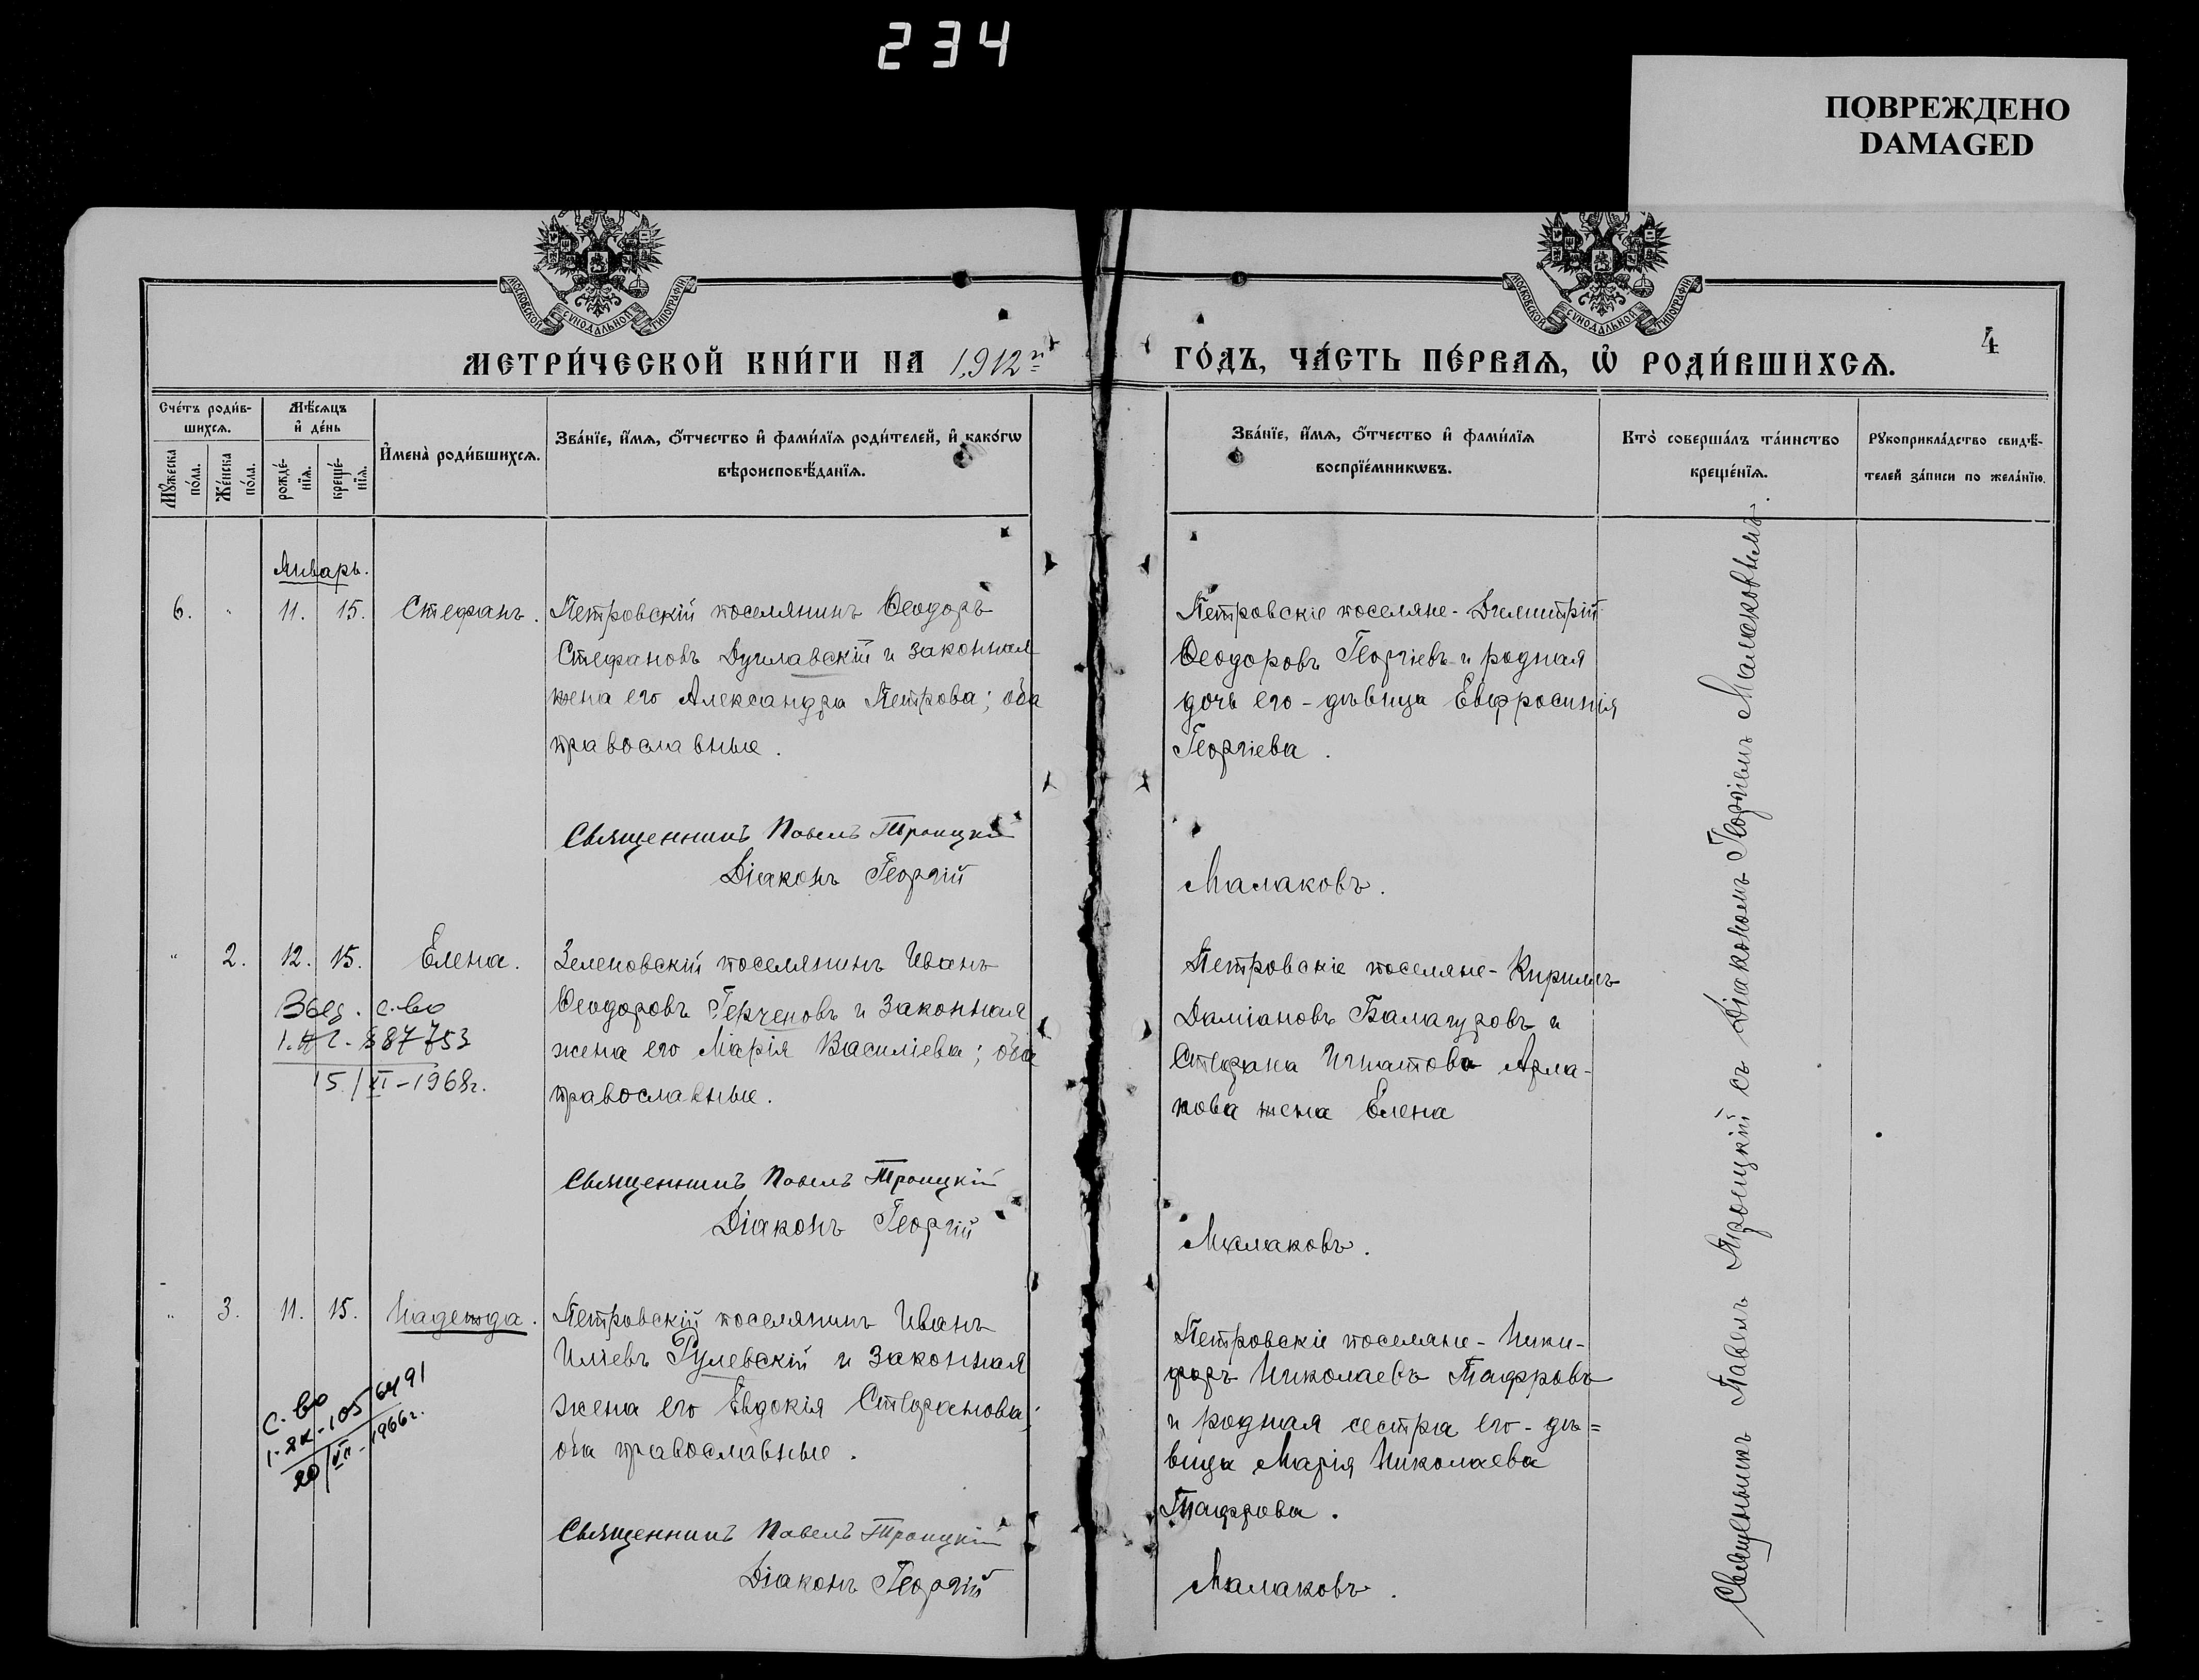 234
ПОВРЕЖДЕНО
DAMAGED
МОСКОВСКОЙ СѴНОДАЛЬНОЙ ТИПОГРАФІИ
МОСКОВСКОЙ СѴНОДАЛЬНОЙ ТИПОГРАФІИ
МЕТРИ́ЧЕСКОЙ КНИ́ГИ НА 1912й
ГО́ДЪ, ЧА́СТЬ ПЕ́РВАѦ, Ѡ҆ РОДИ́ВШИХСѦ.
4
Сче́тъ роди́в-
шихсѧ.
Мꙋ́жеска по́ла.
Же́нска по́ла.
Мѣ́сѧцъ
и҆ де́нь
рожде́-
нїѧ.
креще́-
нїѧ.
И҆мена̀ роди́вшихсѧ.
Зва́нїе, и҆́мѧ, ѻ҆́тчество и҆ фами́лїѧ роди́телей, и҆ како́гѡ
вѣроисповѣ́данїѧ.
Зва́нїе, и҆́мѧ, ѻ҆́тчество и҆ фами́лїѧ
воспрїе́мникѡвъ.
Кто̀ соверша́лъ та́инство
креще́нїѧ.
Рꙋкоприкла́дство свидѣ́-
телей за́писи по жела́нїю.
Январь.
6. " 11. 15. Стефанъ.
Петровскій поселянинъ Ѳеодоръ
Стефановъ Дуплавскій и законная
жена его Александра Петрова; оба
православные.
Священникъ Павелъ Троицкій
Діаконъ Георгій
Петровскіе поселяне - Димитрій
Ѳеодоровъ Георгіевъ и родная
дочь его - дѣвица Евфросинія
Георгіева.
Малаковъ.
" 2. 12. 15. Елена.
Выд. с-во
87753
15/XI-1968г.
Зеленовскій поселянинъ Иванъ
Ѳеодоровъ Герченовъ и законная
жена его Марія Василіева; оба
православные.
Священникъ Павелъ Троицкій
Діаконъ Георгій
Петровскіе поселяне - Кириллъ
Даміановъ Балагуровъ и
Стефана Игнатова Арла-
кова жена Елена
Малаковъ.
" 3. 11. 15. Надежда.
С-во
1-ЯК-105 6491
20/VII-1966г.
Петровскій поселянинъ Иванъ
Иліевъ Рулевскій и законная
жена его Евдокія Стефанова;
оба православные.
Священникъ Павелъ Троицкій
Діаконъ Георгій
Петровскіе поселяне - Ники-
форъ Николаевъ Тафровъ
и родная сестра его - дѣ=
вица Марія Николаева
Тафрова.
Малаковъ.
Священникъ Павелъ Троицкій съ Діакономъ Георгіемъ Малаковымъ.